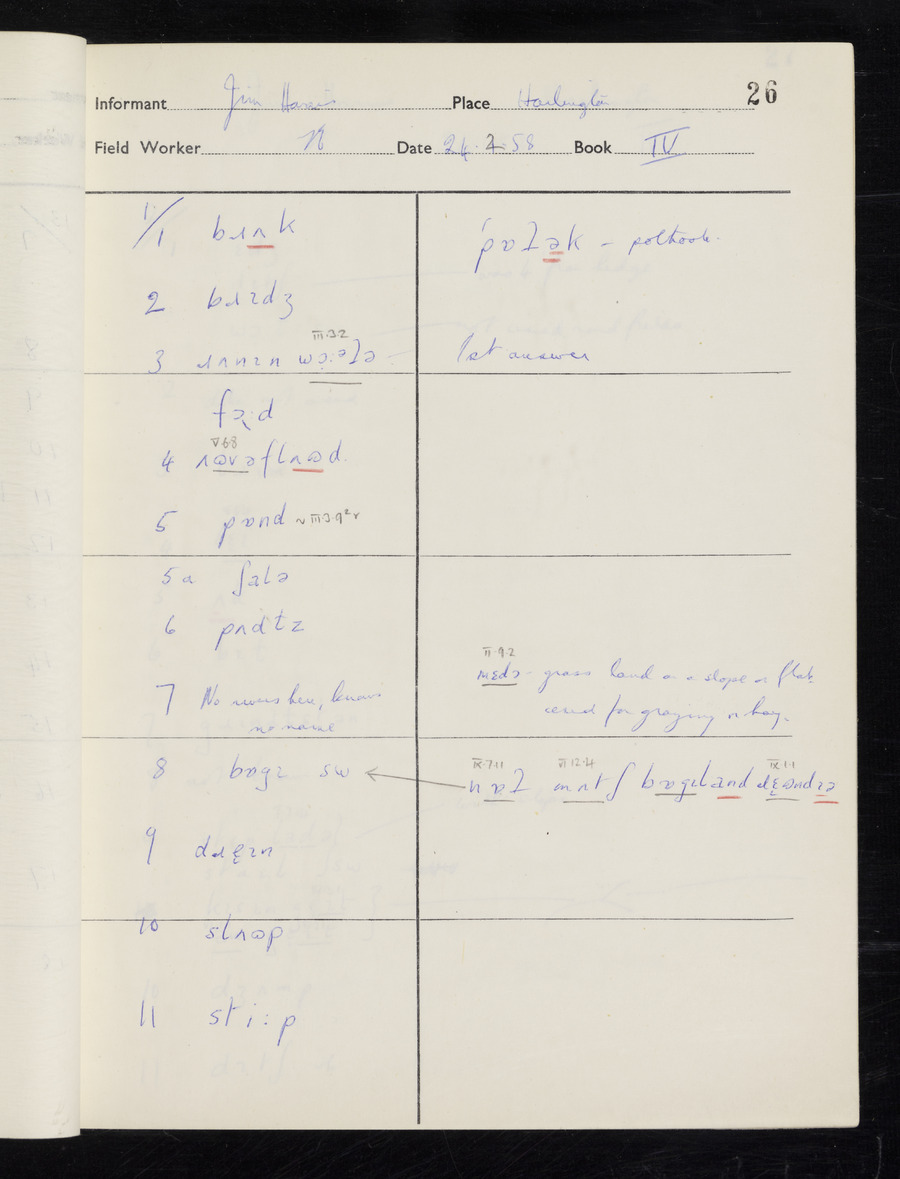 26
Informant Jim Harris Place Harlington
Field Worker Date 24.2.58 Book IV
1/1 bɹʌk
ˈpɒɫək – pothook.
2 bɹɪdʒ
III.3.2
3 ɹʌnɪn wɔːəɫə
1st answer
V.6.8
4
5 pɒnd ~ III.3.9
5a ʃalə
6 pʌdɫz
II.9.2
7 No rivers here, knows
mɛdə – grass land on a slope or flat
no name
used for grazing or hay.
IX.7.11 VI.12.4 IX.1.1
8 bɒgɪ sw
nɒɫ mʌtʃ bɒgɪ land
9 dɹɛɪn
10 slʌɷp
11 sti:p